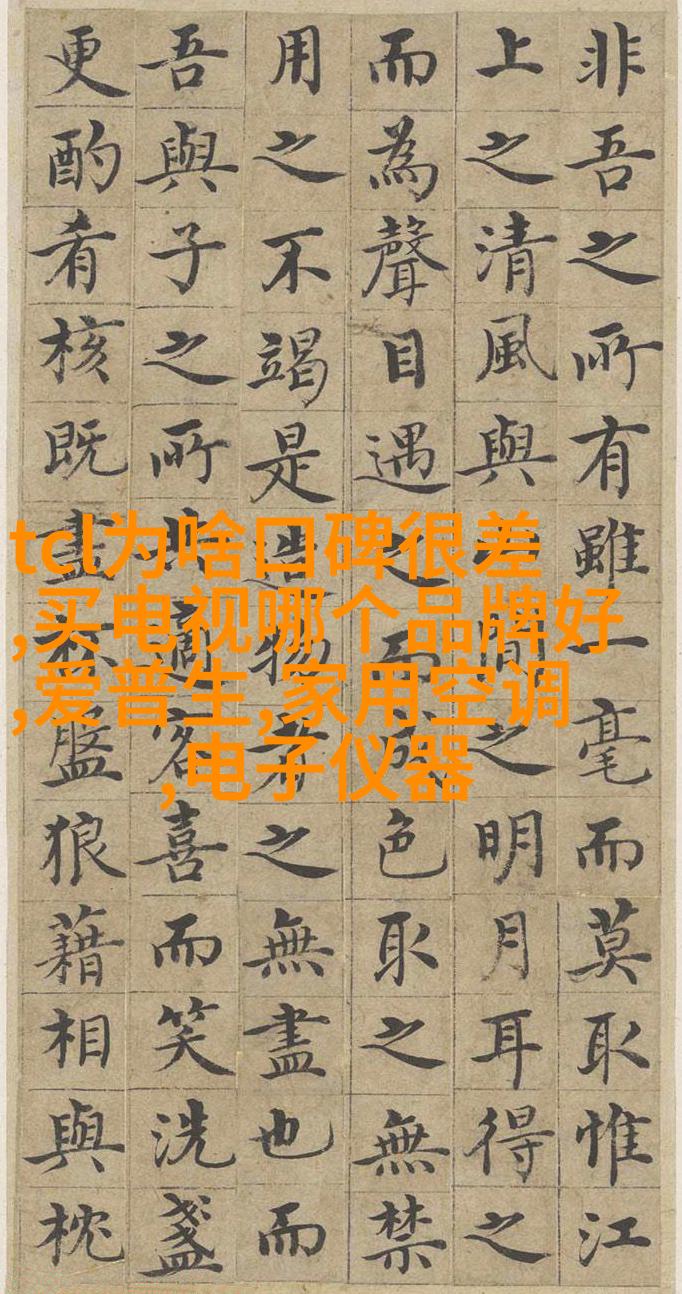 非吾之所有雖一毫而莫取惟江
上之清風與間之明月耳得之
而為聲目遇之而成色取之無禁
用之不竭是造物者之無盡也而
吾與子之所適客喜而笑洗盞
更酌肴核既盡杯盤狼藉相與枕
tcl为啥口碑很差
,买电视哪个品牌好
,爱普生,家用空调
,电子仪器